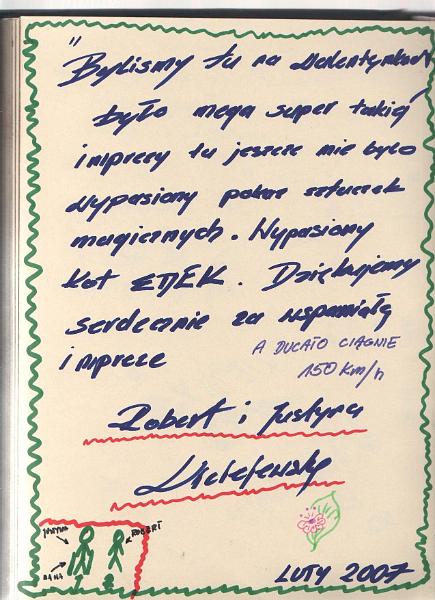 "Byliśmy tu na Walentynkach
było mega super takiej
imprezy tu jeszcze nie było
wypasiony pokaz sztuczek
magicznych. Wypasiony
kot EMEK. Dziękujemy
serdecznie za wspaniałą
impreze
A DUCATO CIĄGNIE
150 Km/h
Robert i Justyna
JUSTYNA
ROBERT
LUTY 2007